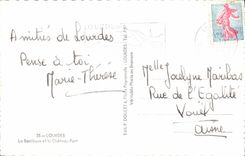 Amitiés de Lourdes
Pense à toi
Marie-Thérèse
Melle Jocelyne Maribas
Rue de l'Egalité
Vouël
Aisne
35 - LOURDES
La Basilique et le Château-Fort
LOURDES